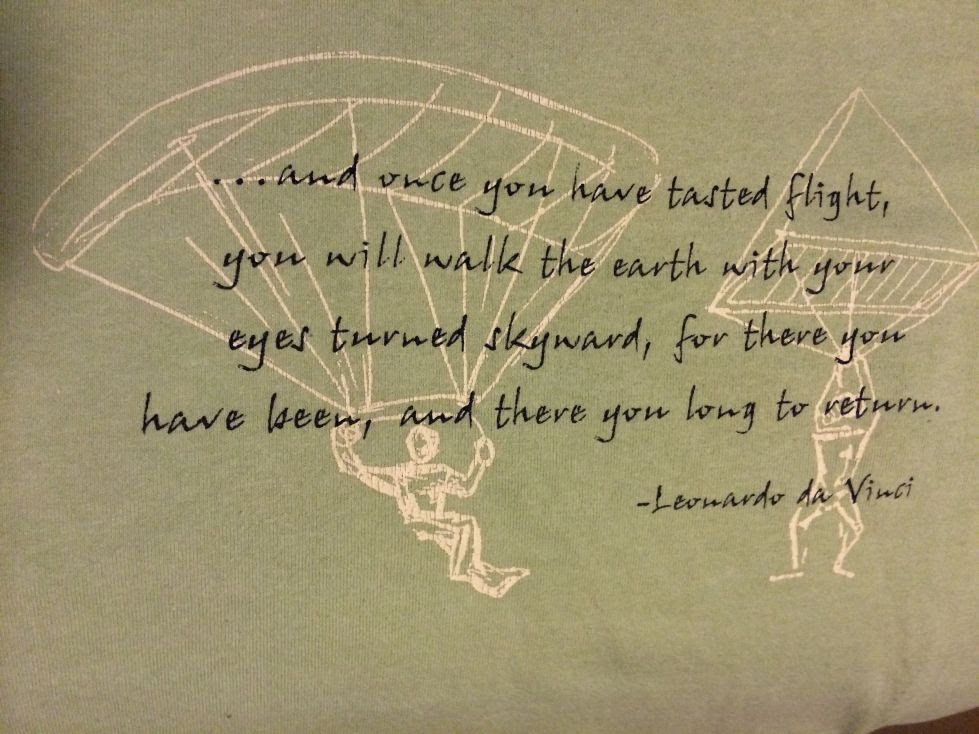 ...and once you have tasted flight,
you will walk the earth with your
eyes turned skyward, for there you
have been, and there you long to return.
-Leonardo da Vinci